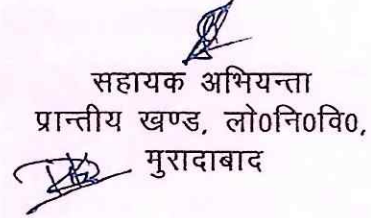 सहायक अभियन्ता
प्रान्तीय खण्ड, लो०नि०वि०,
मुरादाबाद